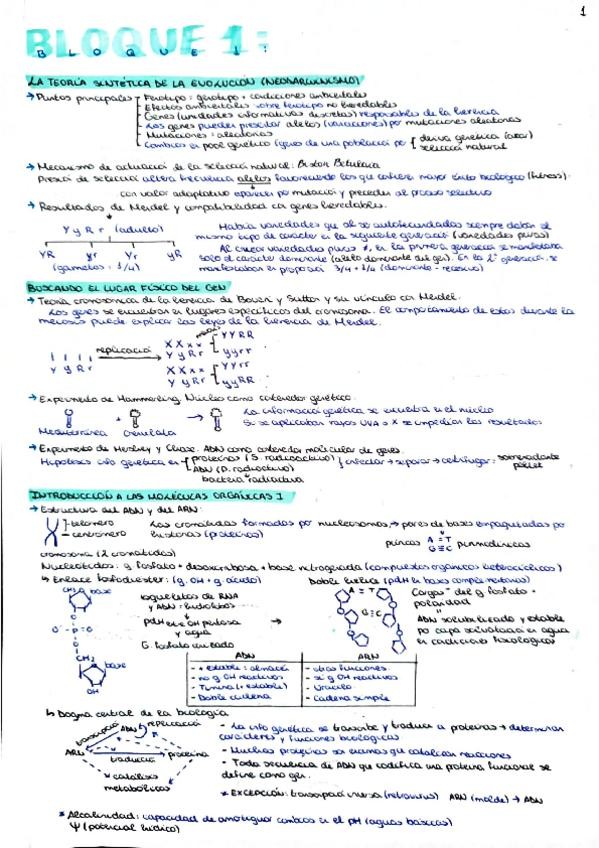 1
BLOQUE 1:
BLOQUE 1:
LA TEORÍA SINTÉTICA DE LA EVOLUCIÓN (NEODARWINISMO)
→ Puntos principales
Fenotipo: genotipo + condiciones ambientales
Efectos ambientales sobre fenotipo no heredables
Genes (unidades informativas discretas) responsables de la herencia
Los genes pueden presentar alelos (variaciones) por mutaciones aleatorias
Mutaciones: aleatorias
Cambios en pool genético (genes de una población) por
deriva genética (azar)
selección natural
→ Mecanismo de actuación de la selección natural: Biston Betularia
Presión de selección altera frecuencia alelos favoreciendo los que confieren mayor éxito biológico (fitness).
con valor adaptativo aparecen por mutación y preceden al proceso selectivo
→ Resultados de Mendel y compatibilidad con genes heredables.
Y y R r (adulto)
YR yr Yr yR
(gametos: 1/4)
Había variedades que al ser autofecundadas siempre daban el
mismo tipo de carácter en la siguiente generación (variedades puras)
Al cruzar variedades puras ≠, en la primera generación se manifestaba
solo el carácter dominante (alelo dominante del gen). En la 2ª generación, se
manifestaban en proporción 3/4 + 1/4 (dominante - recesivo)
BUSCANDO EL LUGAR FÍSICO DEL GEN
→ Teoría cromosómica de la herencia de Boveri y Sutton y su vínculo con Mendel.
Los genes se encuentran en lugares específicos del cromosoma. El comportamiento de estos durante la
meiosis puede explicar las leyes de la herencia de Mendel.
Y y R r
replicación
X X x x
Y y R r
X X x x
Y y R r
YYRR
yyrr
YYrr
yyRR
→ Experimento de Hammerling. Núcleo como contenedor genético.
Mediterránea + Crenulata →
La información genética se encuentra en el núcleo
Si se aplicaban rayos UVA o X se impedían los resultados
→ Experimento de Hershey y Chase. ADN como contenedor molecular de genes.
Hipótesis info genética en
proteínas (S. radioactivo)
ADN (P. radioactivo)
bacteria radiactiva
infección → separar → centrifugar:
sobrenadante
pellet
INTRODUCCIÓN A LAS MOLÉCULAS ORGÁNICAS I
→ Estructura del ADN y del ARN:
telómero
centrómero
cromosoma (2 cromátidas)
Las cromátidas formadas por nucleosomas → pares de bases empaquetadas por
histonas (proteínas)
púricas A = T
G ≡ C pirimidínicas
Nucleótidos: g. fosfato + desoxirribosa + base nitrogenada (compuestos orgánicos heterocíclicos)
↳ Enlace fosfodiéster: (g. OH + g. ácido)
CH₂ base
O
O⁻ - P = O
O
CH₂ base
OH
pdH en OH pentosa
y agua
G. fosfato cargado
Doble hélice (pdH en bases complementarias)
A = T
G ≡ C
Cargas⁻ del g. fosfato +
polaridad
ADN solubilizado y estable
por capa solvatada en agua
en condiciones fisiológicas
ADN
- + estable: almacén
- no g. OH reactivos
- Timina (+ estable)
- Doble cadena
ARN
- otras funciones
- sí g. OH reactivos
- Uracilo
- Cadena simple
↳ Dogma central de la biología
transcripción
ADN
replicación
ARN
traducción
proteína
catálisis
metabólicas
- La info genética se transcribe y traduce a proteínas → determinan
caracteres y funciones biológicas
- Muchas proteínas son enzimas que catalizan reacciones
- Toda secuencia de ADN que codifica una proteína funcional se
define como gen.
* EXCEPCIÓN: transcripción inversa (retrovirus) ARN (molde) → ADN
* Alcalinidad: capacidad de amortiguar cambios en el pH (aguas básicas)
Ψ (potencial hídrico)